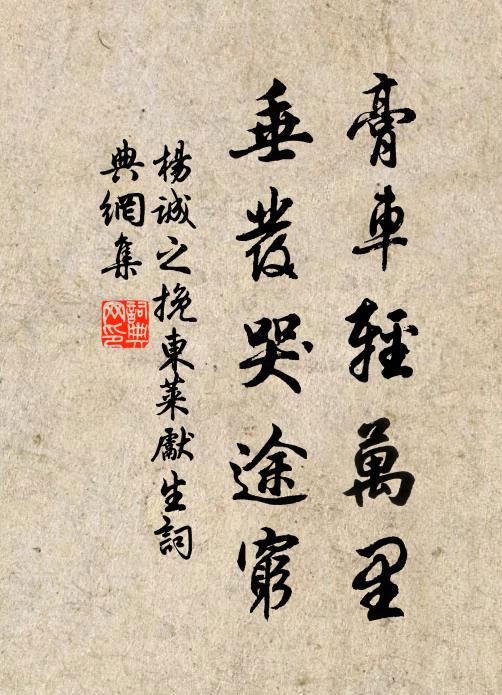 膏車輕萬里
垂發哭途窮
楊誠之挽東萊獻生詞
典網集
詞典
网印